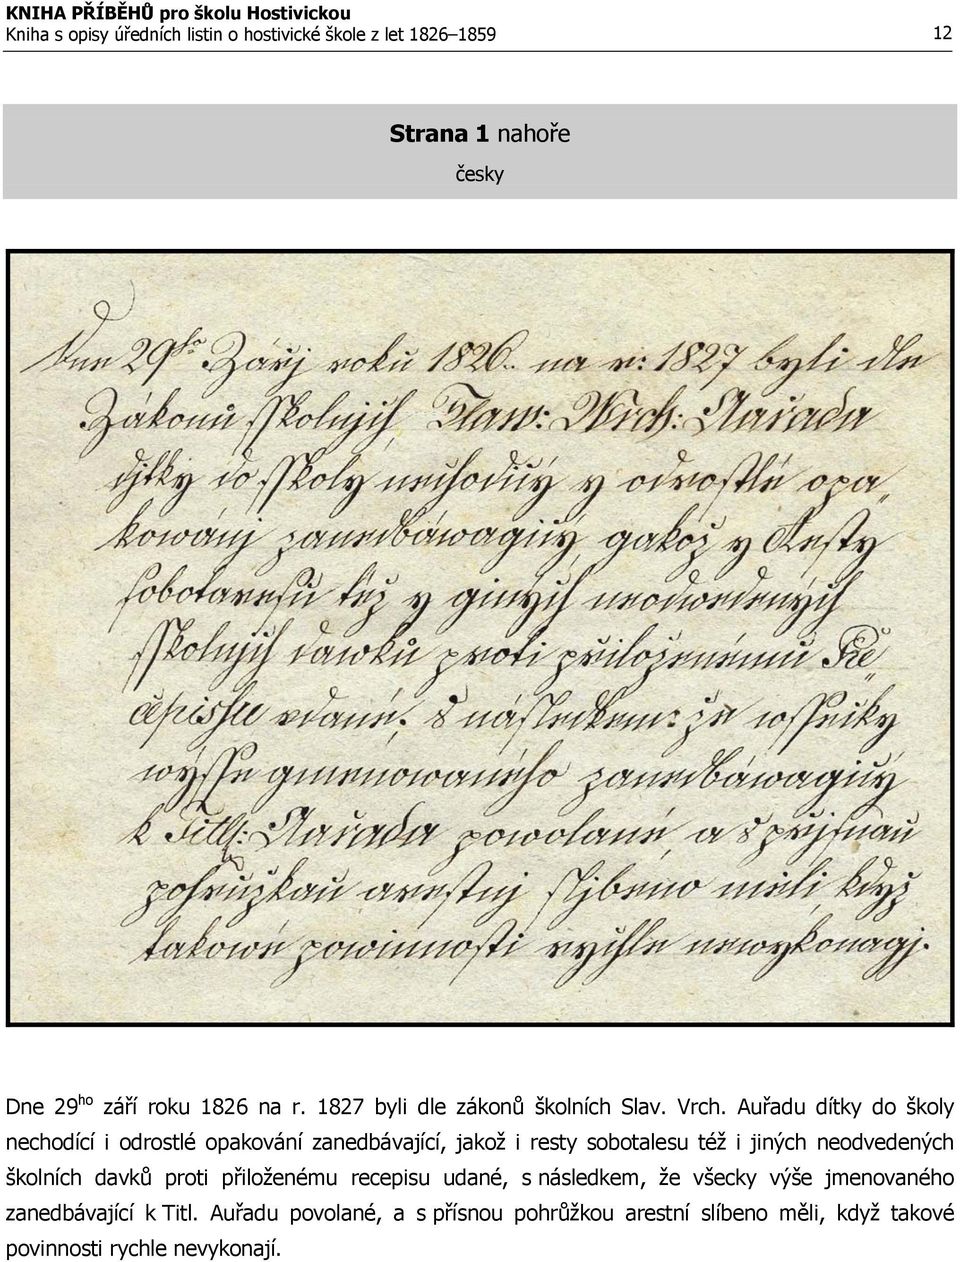 KNIHA PŘÍBĚHŮ pro školu Hostivickou
Kniha s opisy úředních listin o hostivické škole z let 1826–1859 12
Strana 1 nahoře
česky
Dne 29ho Zářj roku 1826.. na r: 1827 byli dle
Zákonů sskolnjch, Slaw: Wrch: Auřadu
djtky do sskoly nechodicý y odrostlé opa„
kowánj zanedbáwagicý, gakož y Resty
sobotalesu též y giných neodwedených
sskolnjch dawků proti přiloženému Re„
cepishu udané, s následkem: že wssecky
wýsse gmenowaného zanedbáwagicý
k Titl: Auřadu powolané, a s přjsnau
pohružkau arestnj sljbeno měli, když
takowé powinnosti rychle newykonagj.
Dne 29ho září roku 1826 na r. 1827 byli dle zákonů školních Slav. Vrch. Auřadu dítky do školy
nechodící i odrostlé opakování zanedbávající, jakož i resty sobotalesu též i jiných neodvedených
školních davků proti přiloženému recepisu udané, s následkem, že všecky výše jmenovaného
zanedbávající k Titl. Auřadu povolané, a s přísnou pohrůžkou arestní slíbeno měli, když takové
povinnosti rychle nevykonají.